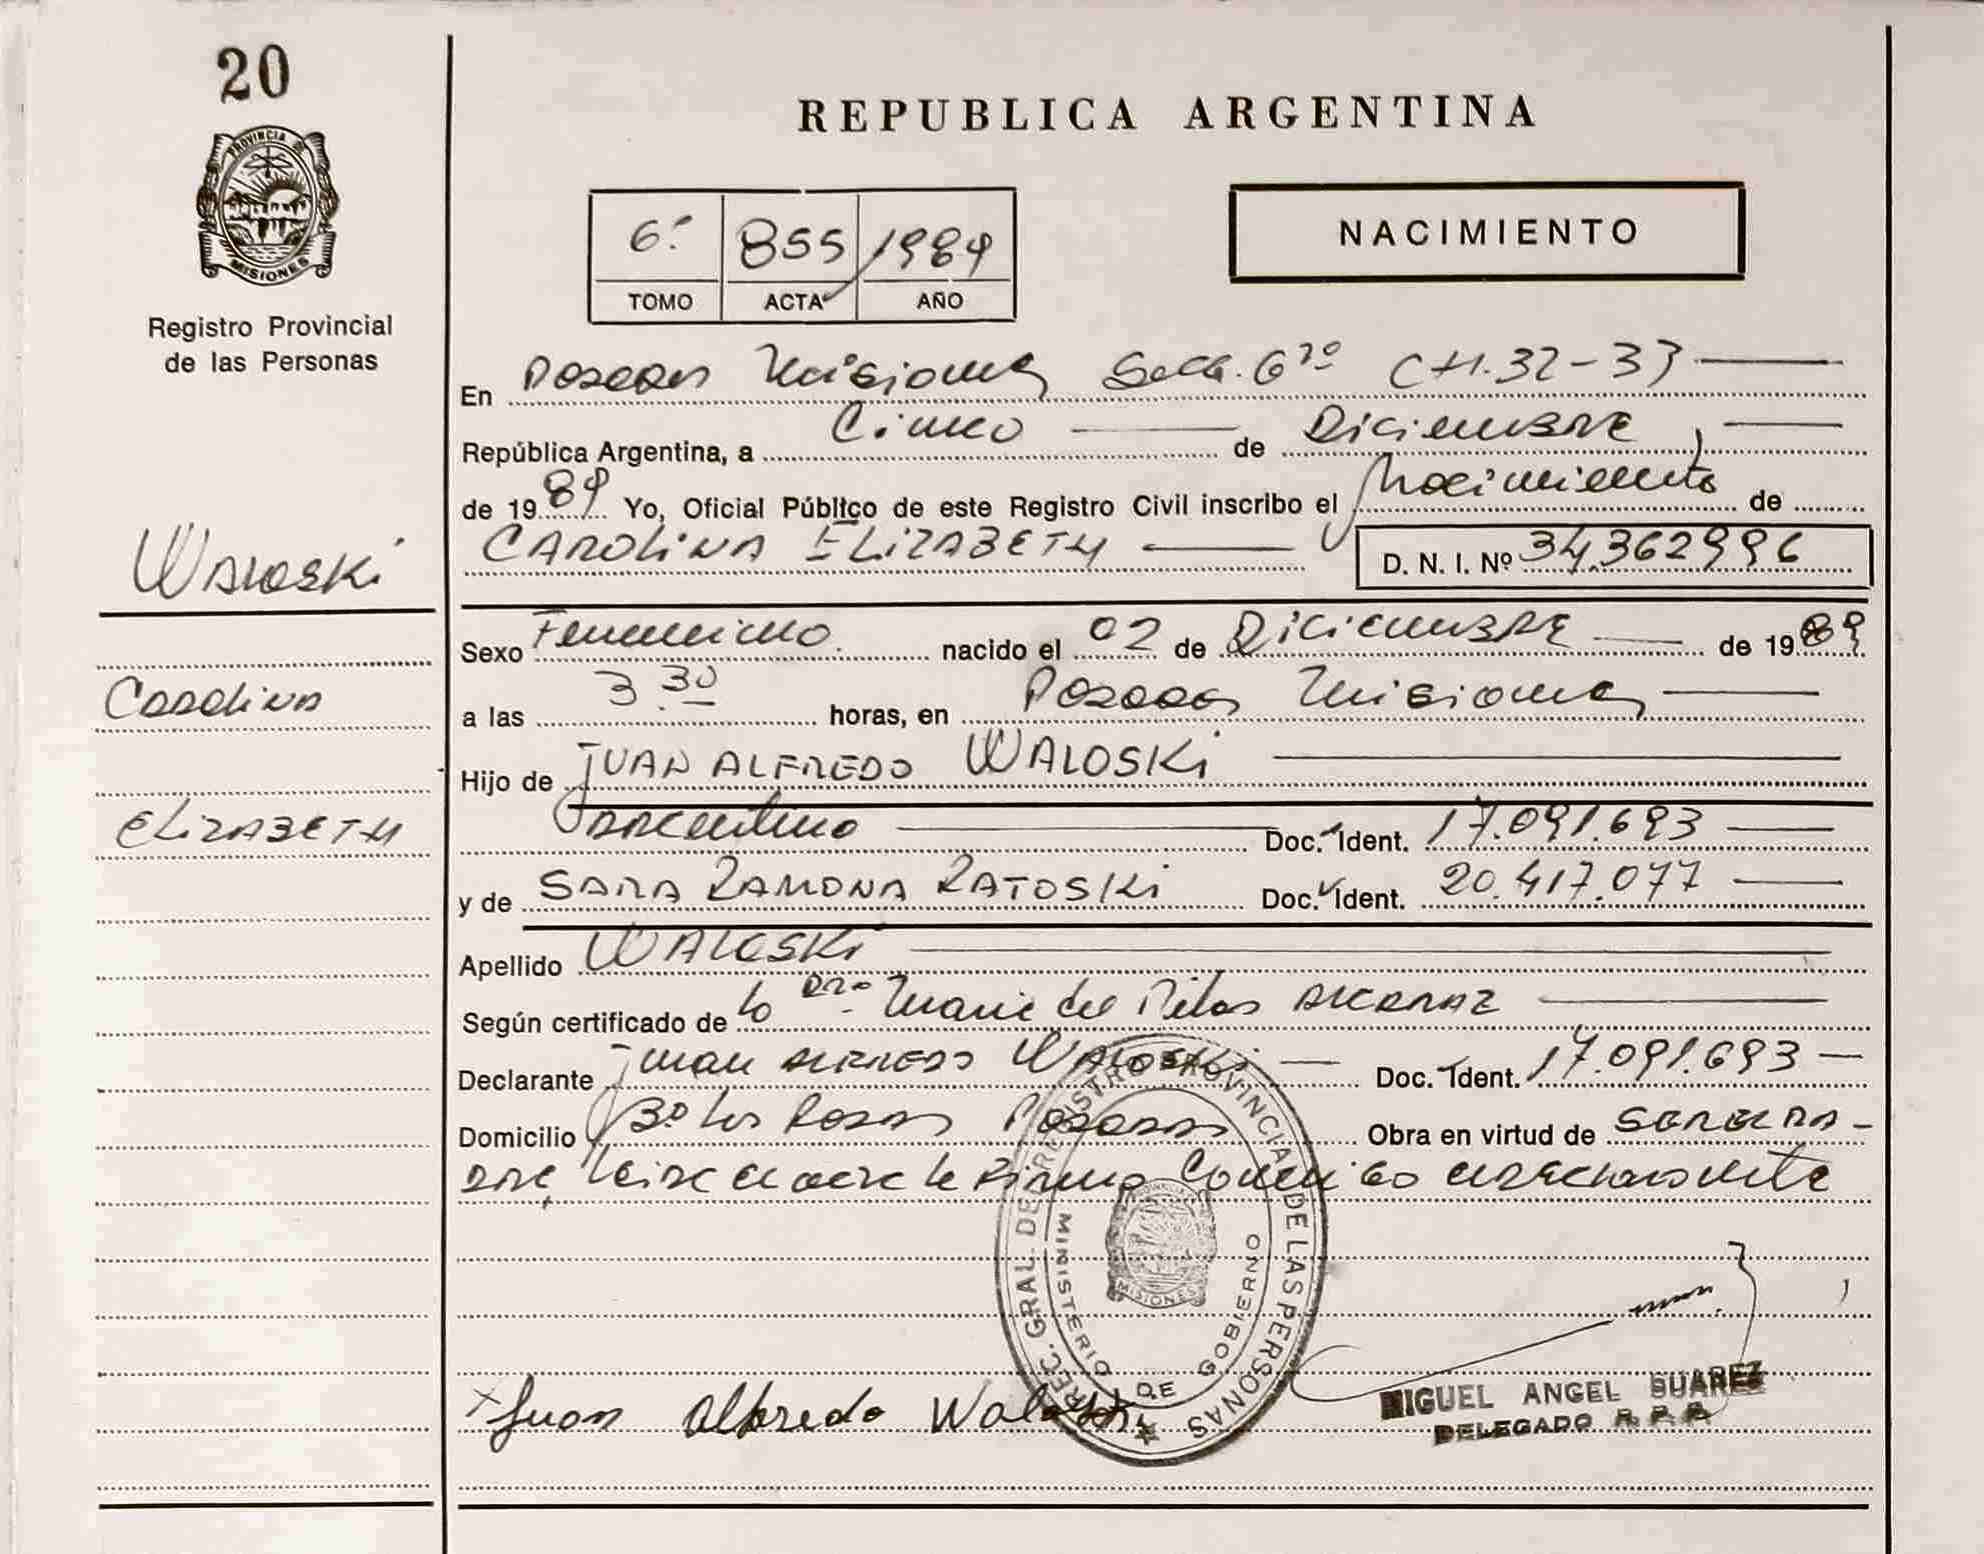 20
PROVINCIA DE
MISIONES
Registro Provincial
de las Personas
REPUBLICA ARGENTINA
6º 855 1989
TOMO ACTA AÑO
NACIMIENTO
En Posadas Misiones Secc. 6ta CH. 32-33
República Argentina, a Cinco de Diciembre
de 1989 Yo, Oficial Público de este Registro Civil inscribo el Nacimiento de
CAROLINA ELIZABETH D. N. I. Nº 34.362996
Waloski
Carolina
ELIZABETH
Sexo Femenino nacido el 02 de Diciembre de 1989
a las 3.30 horas, en Posadas Misiones
Hijo de JUAN ALFREDO WALOSKI
Argentino Doc. Ident. 17.091.693
y de SARA RAMONA RATOSKI Doc. Ident. 20.417.077
Apellido WALOSKI
Según certificado de la Dra. Maria del Pilar ALCARAZ
Declarante Juan ALFREDO WALOSKI Doc. Ident. 17.091.693
Domicilio Bº Las Rosas Posadas Obra en virtud de SER EL PA-
DRE el acta la Firma Conmigo el DECLARANTE
DIREC. GRAL. DE REGISTRO PROVINCIAL DE LAS PERSONAS
MINISTERIO DE GOBIERNO
MISIONES
Juan Alfredo Waloski
MIGUEL ANGEL SUAREZ
DELEGADO R.P.P.